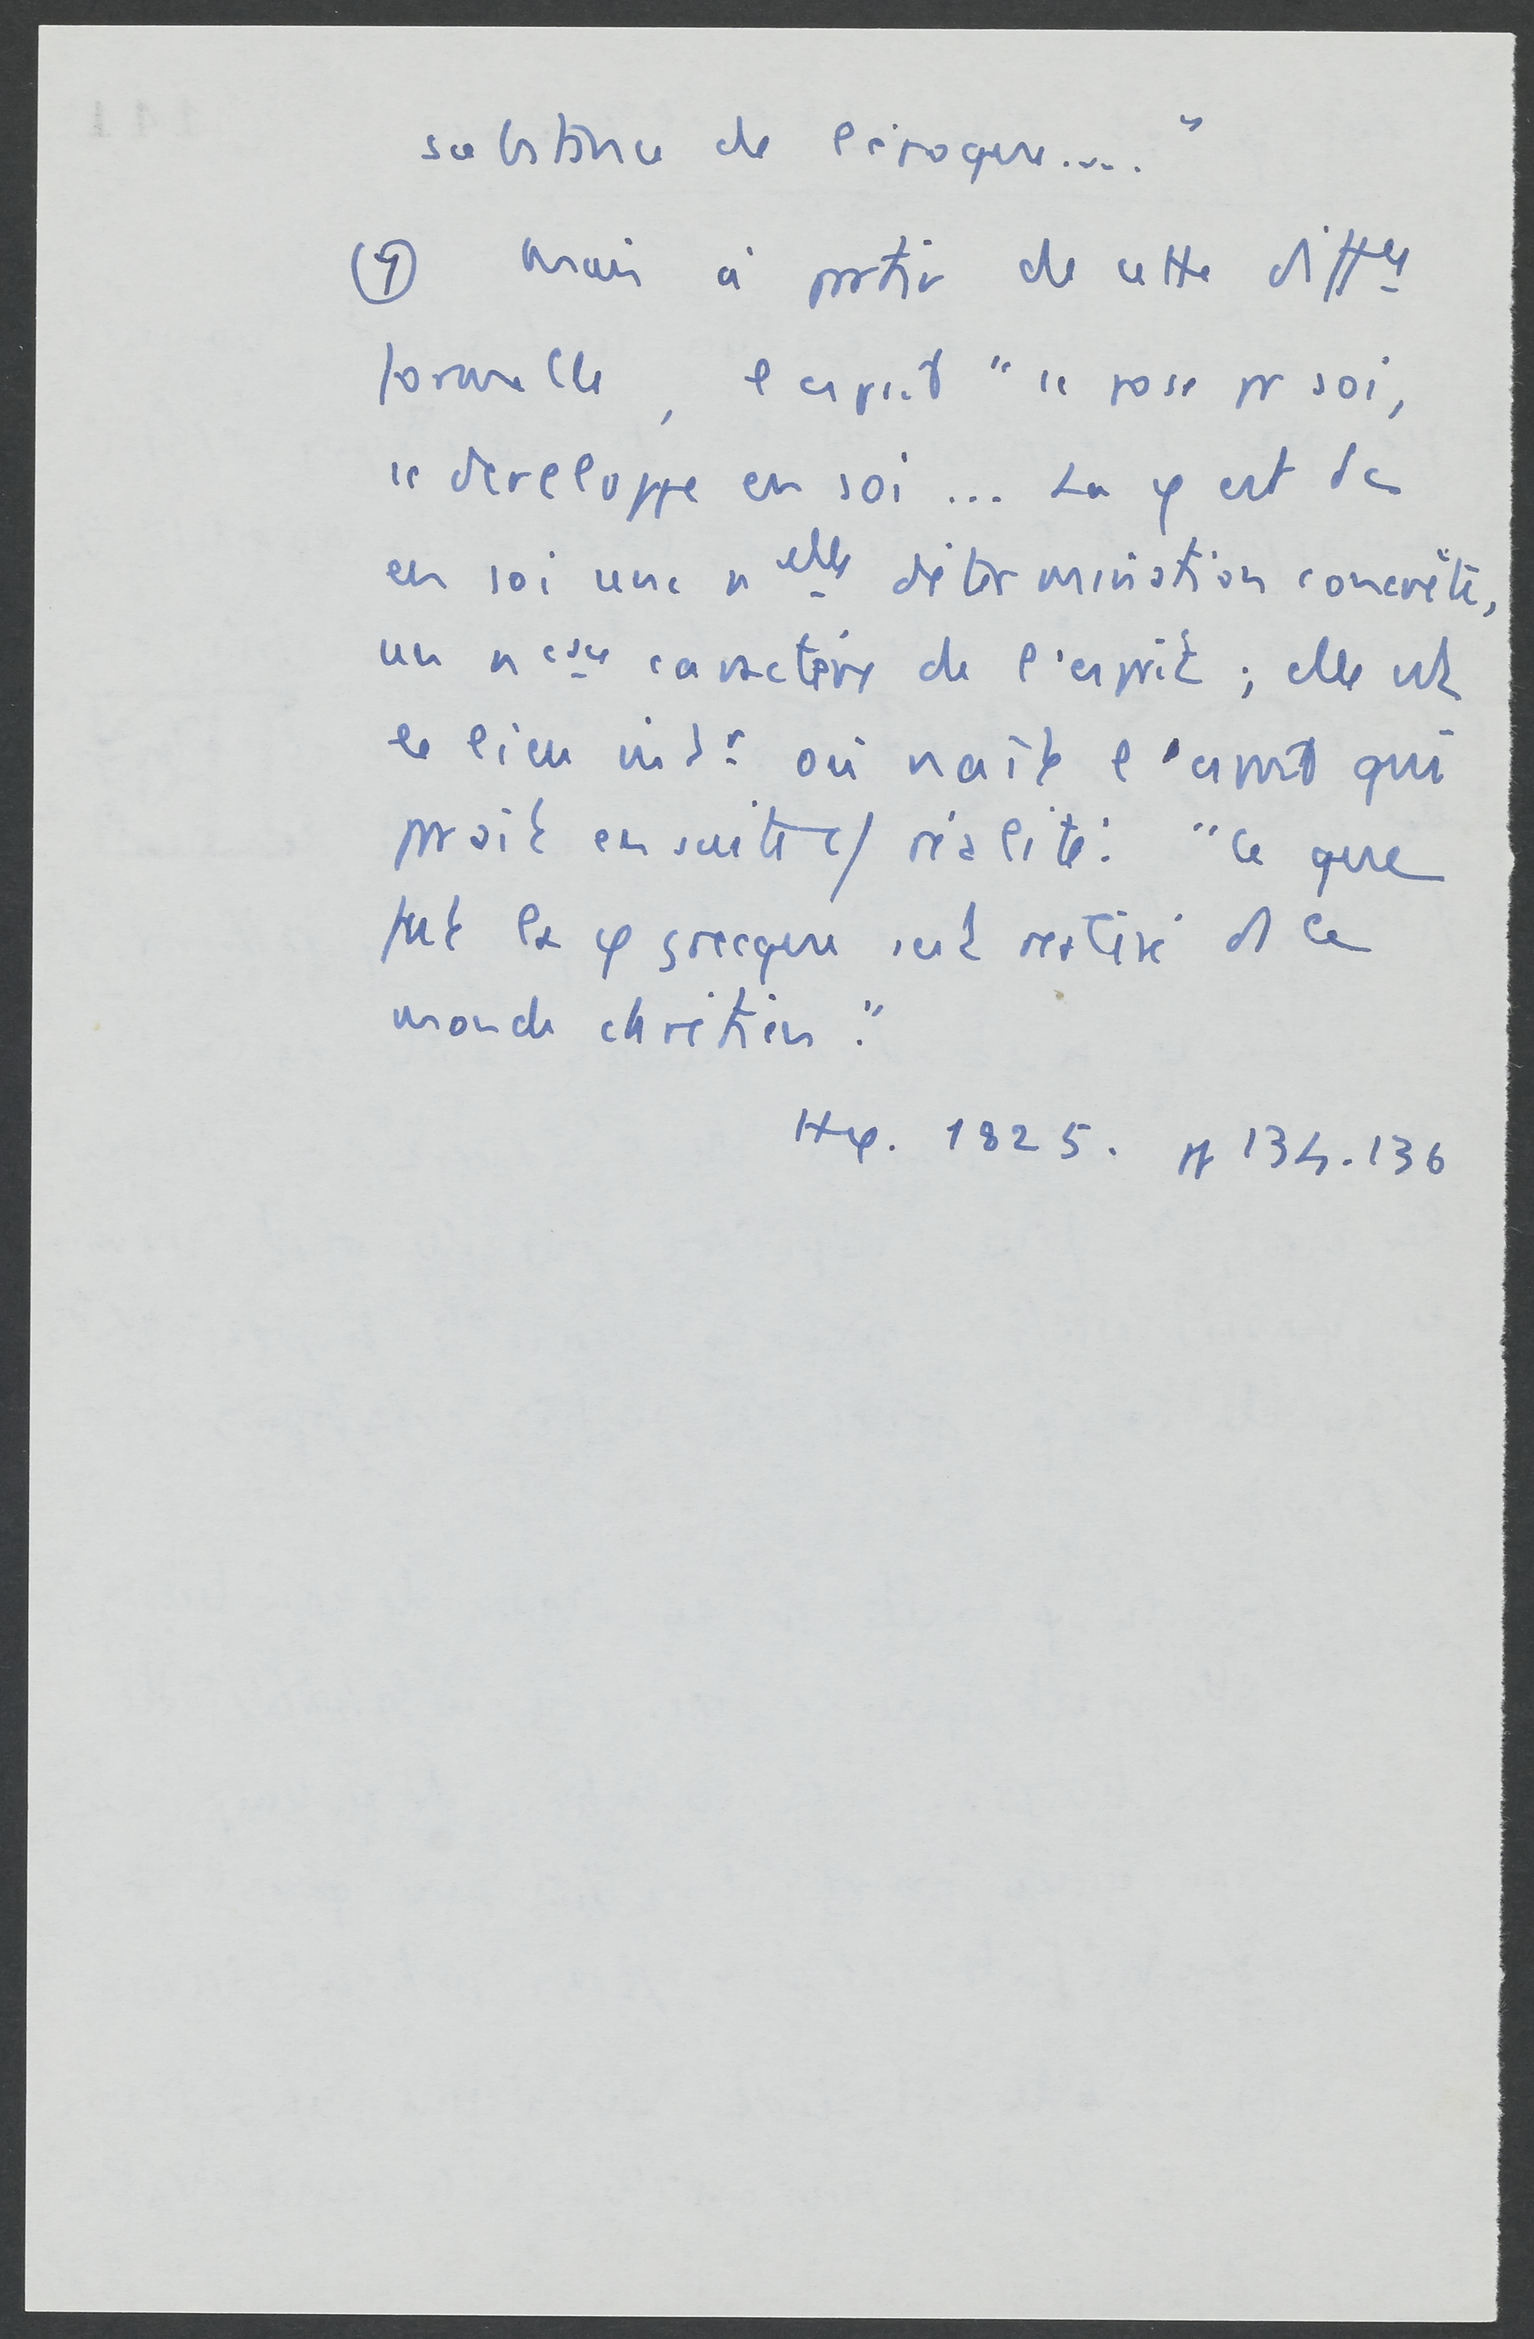 substance de l'époque.... "
④ Mais à partir de cette diffce
formelle, l'esprit " se pose pr soi,
se développe en soi ... La φ est dc
en soi une nelle détermination concrète,
un nveau caractère de l'esprit ; elle est
le lieu intr où naît l'esprit qui
paraît ensuite c/ réalité. " Ce que
fut la φ grecque est réalisé ds le
monde chrétien."
Hφ. 1825. pp 134.136